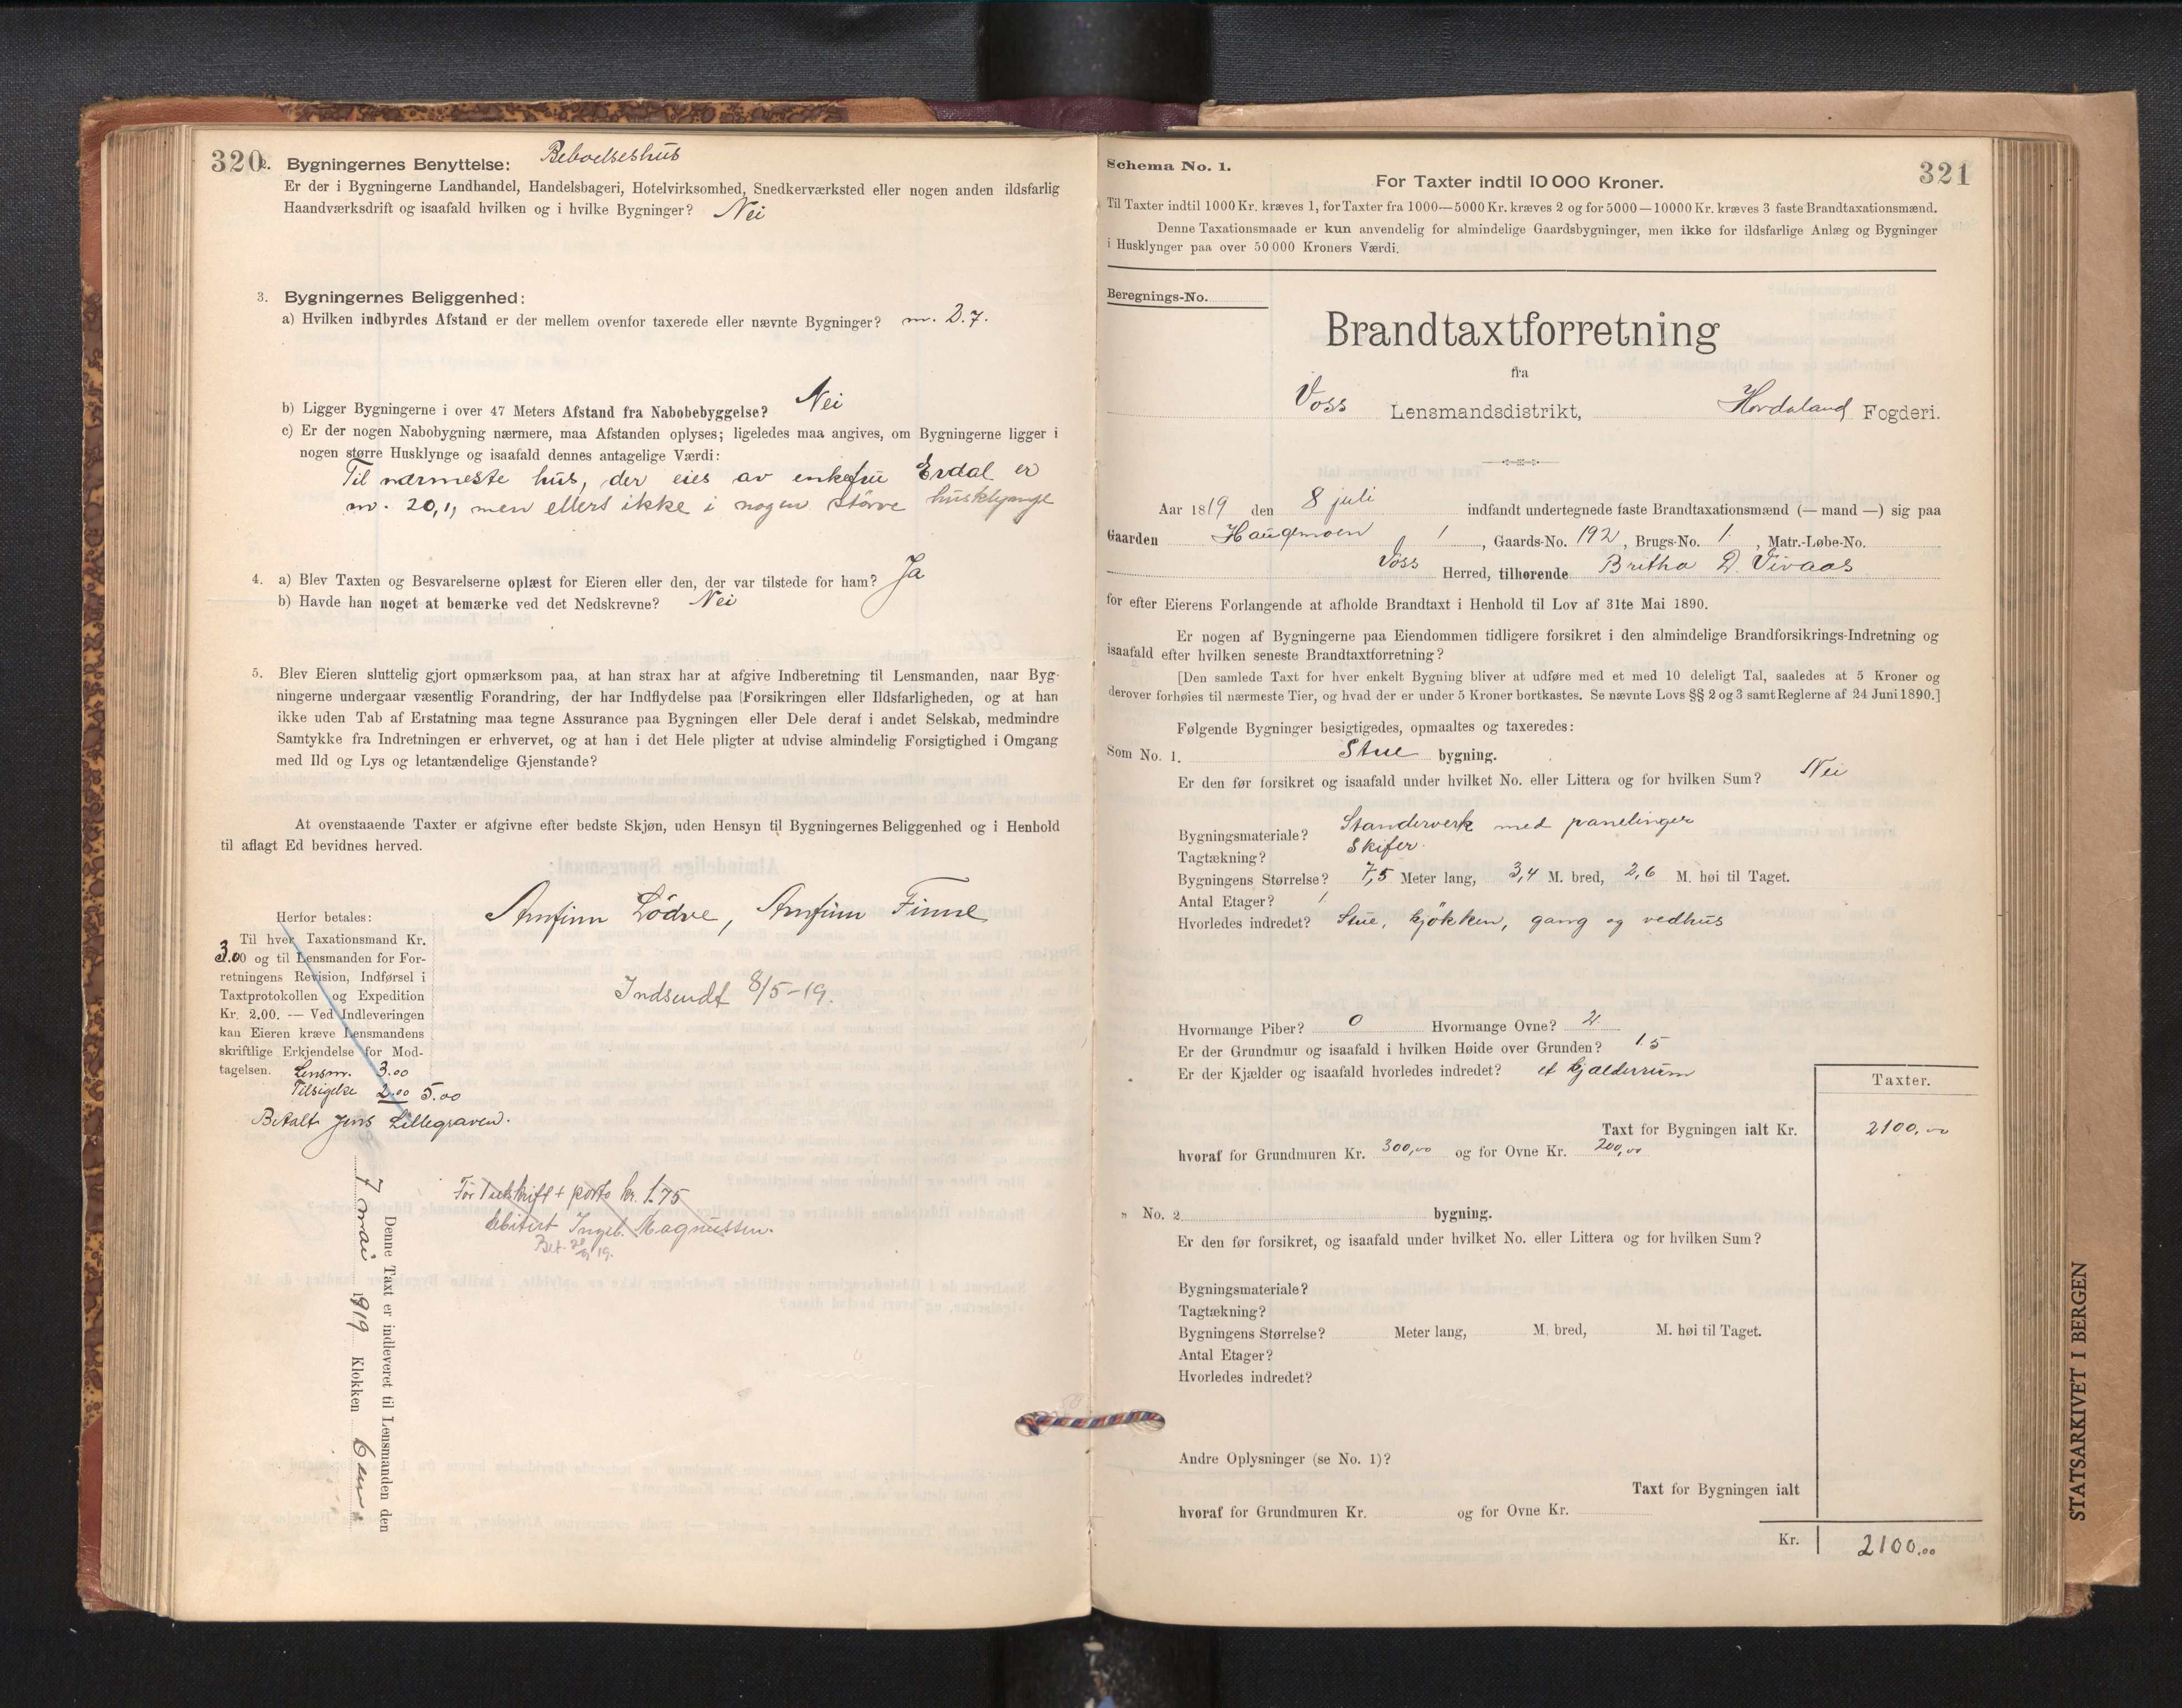 320
2. Bygningernes Benyttelse: Beboelseshus
Er der i Bygningerne Landhandel, Handelsbageri, Hotelvirksomhed, Snedkerværksted eller nogen anden ildsfarlig
Haandværksdrift og isaafald hvilken og i hvilke Bygninger? Nei
3. Bygningernes Beliggenhed:
a) Hvilken indbyrdes Afstand er der mellem ovenfor taxerede eller nævnte Bygninger? m. 2.7.
b) Ligger Bygningerne i over 47 Meters Afstand fra Nabobebyggelse? Nei
c) Er der nogen Nabobygning nærmere, maa Afstanden oplyses; ligeledes maa angives, om Bygningerne ligger i
nogen større Husklynge og isaafald dennes antagelige Værdi:
Til nærmeste hus, der eies av enkefru Erdal er
m. 20,1, men ellers ikke i nogen større husklynge
4. a) Blev Taxten og Besvarelserne oplæst for Eieren eller den, der var tilstede for ham? Ja
b) Havde han noget at bemærke ved det Nedskrevne? Nei
5. Blev Eieren sluttelig gjort opmærksom paa, at han strax har at afgive Indberetning til Lensmanden, naar Byg-
ningerne undergaar væsentlig Forandring, der har Indflydelse paa (Forsikringen eller Ildsfarligheden, og at han
ikke uden Tab af Erstatning maa tegne Assurance paa Bygningen eller Dele deraf i andet Selskab, medmindre
Samtykke fra Indretningen er erhvervet, og at han i det Hele pligter at udvise almindelig Forsigtighed i Omgang
med Ild og Lys og letantændelige Gjenstande?
At ovenstaaende Taxter er afgivne efter bedste Skjøn, uden Hensyn til Bygningernes Beliggenhed og i Henhold
til aflagt Ed bevidnes herved.
Arnfinn Lødve, Arnfinn Finne
Indsendt 8/5-19.
Herfor betales:
Til hver Taxationsmand Kr.
3.00 og til Lensmanden for For-
retningens Revision, Indførsel i
Taxtprotokollen og Expedition
Kr. 2.00. — Ved Indleveringen
kan Eieren kræve Lensmandens
skriftlige Erkjendelse for Mod-
tagelsen. Lensm. 3.00
Tilsigelse 2.00 5.00
Betalt Jens Lillegraven.
For utskrift + porto kr. 1.75
debitert Ingeb. Magnussen.
Denne Taxt er indleveret til Lensmanden den
7 mai 1919 Klokken 6 em.
Schema No. 1.
321
For Taxter indtil 10 000 Kroner.
Til Taxter indtil 1000 Kr. kræves 1, for Taxter fra 1000—5000 Kr. kræves 2 og for 5000—10000 Kr. kræves 3 faste Brandtaxationsmænd.
Denne Taxationsmaade er kun anvendelig for almindelige Gaardsbygninger, men ikke for ildsfarlige Anlæg og Bygninger
i Husklynger paa over 50 000 Kroners Værdi.
Beregnings-No.
Brandtaxtforretning
fra
Voss Lensmandsdistrikt, Hordaland Fogderi.
Aar 1819 den 8 juli indfandt undertegnede faste Brandtaxationsmænd (— mand —) sig paa
Gaarden Haugmoen 1, Gaards-No. 192, Brugs-No. 1., Matr.-Løbe-No.
Voss Herred, tilhørende Britha D. Vivaas
for efter Eierens Forlangende at afholde Brandtaxt i Henhold til Lov af 31te Mai 1890.
Er nogen af Bygningerne paa Eiendommen tidligere forsikret i den almindelige Brandforsikrings-Indretning og
isaafald efter hvilken seneste Brandtaxtforretning?
[Den samlede Taxt for hver enkelt Bygning bliver at udføre med et med 10 deleligt Tal, saaledes at 5 Kroner og
derover forhøies til nærmeste Tier, og hvad der er under 5 Kroner bortkastes. Se nævnte Lovs §§ 2 og 3 samt Reglerne af 24 Juni 1890.]
Følgende Bygninger besigtigedes, opmaaltes og taxeredes:
Som No. 1. Stue bygning.
Er den før forsikret og isaafald under hvilket No. eller Littera og for hvilken Sum? Nei
Bygningsmateriale? Standerverk med panelinger
Tagtækning? Skifer.
Bygningens Størrelse? 7,5 Meter lang, 3,4 M. bred, 2,6 M. høi til Taget.
Antal Etager? 1
Hvorledes indredet? Stue, kjøkken, gang og vedhus
Hvormange Piber? 0 Hvormange Ovne? 2
Er der Grundmur og isaafald i hvilken Høide over Grunden? 1.5
Er der Kjælder og isaafald hvorledes indredet? et kjælderrum
Taxter.
Taxt for Bygningen ialt Kr. 2100,00
hvoraf for Grundmuren Kr. 300,00 og for Ovne Kr. 200,00
„ No. 2 bygning.
Er den før forsikret, og isaafald under hvilket No. eller Littera og for hvilken Sum?
Bygningsmateriale?
Tagtækning?
Bygningens Størrelse? Meter lang, M. bred, M. høi til Taget.
Antal Etager?
Hvorledes indredet?
Andre Oplysninger (se No. 1)?
Taxt for Bygningen ialt
hvoraf for Grundmuren Kr. og for Ovne Kr.
Kr. 2100,00
STATSARKIVET I BERGEN